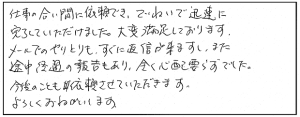 仕事の合い間に依頼でき、ていねいで迅速に
完了していただけました。大変満足しております。
メールでのやりとりも、すぐに返信が来ますし、また
途中経過の報告もあり、全く心配要らずでした。
今後のことも依頼させていただきます。
よろしくおねがいします。